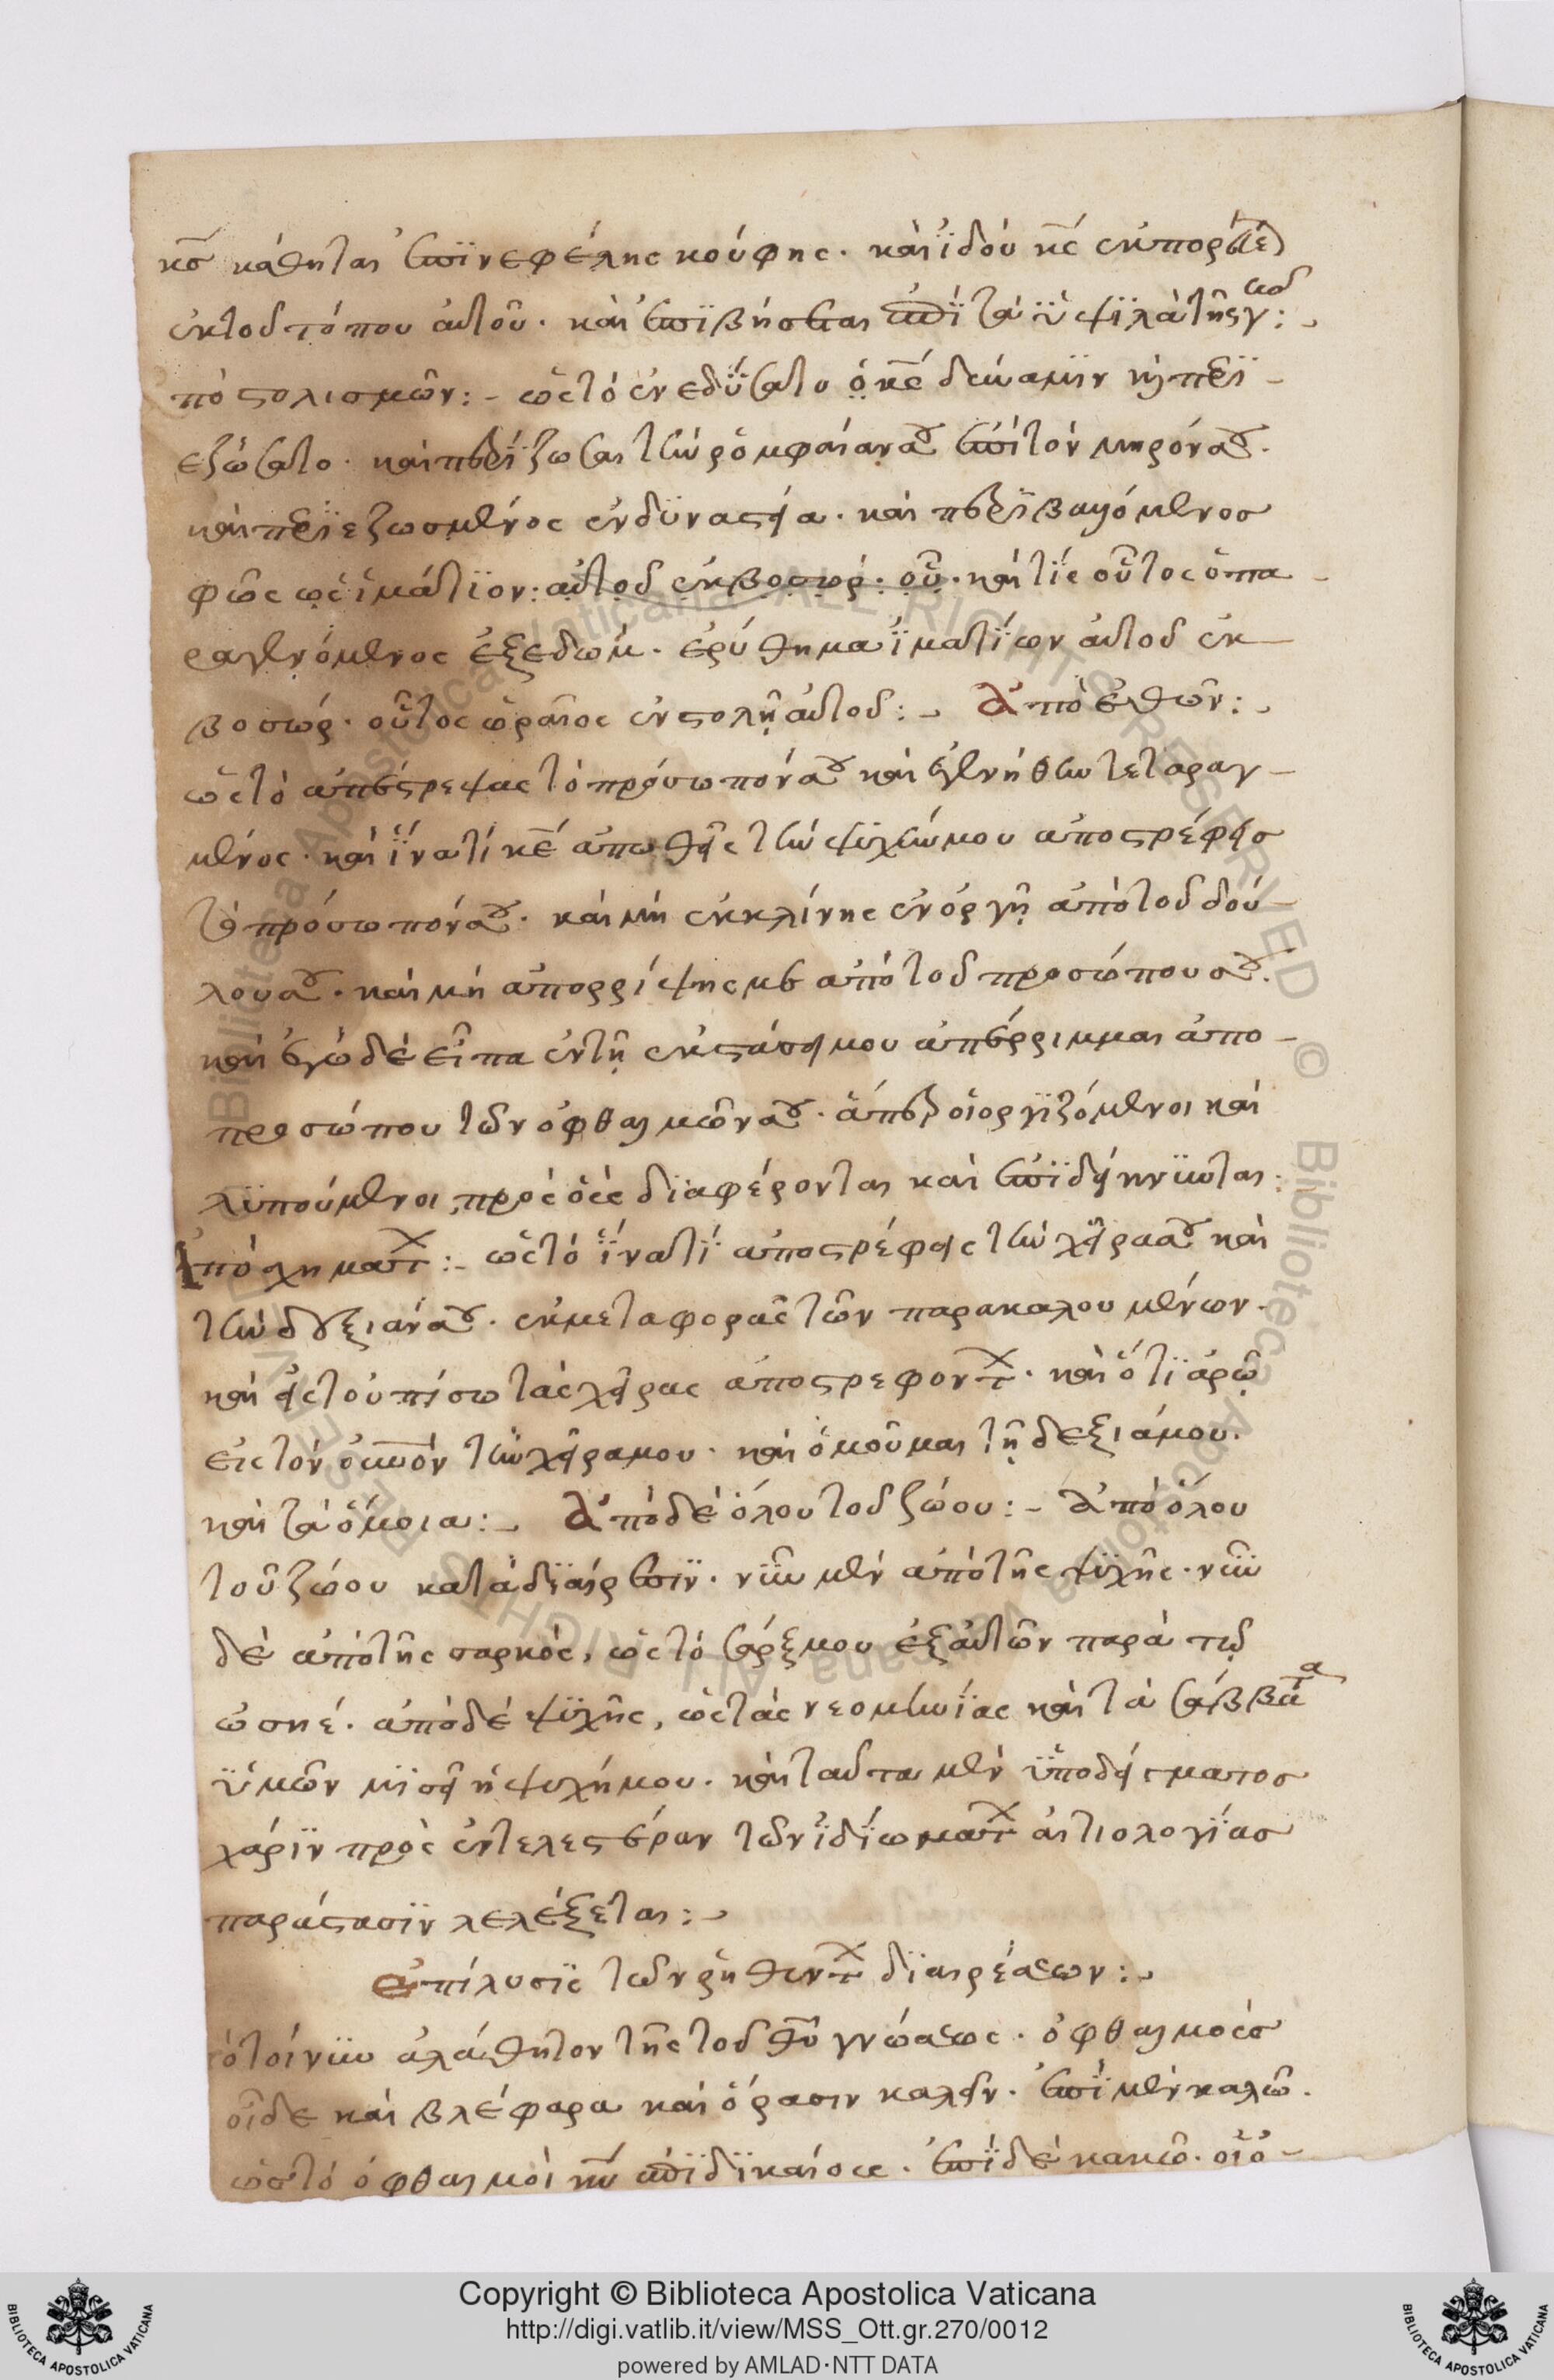 κς κάθηται ἐπὶ νεφέλης κούφης· καὶ ἰδοὺ κς ἐκπορεύε
ἐκ τοῦ τόπου αὐτοῦ· καὶ ἐπιβήσεται ἐπὶ τὰ ὕψι λὰ τῆς γ:
πὸ στολισμῶν:- ὡς τὸ ἐνεδύσατο ὁ κς δύναμιν κ περι-
εζώσατο· καὶ περίζωσαι τὴν ῥομφαίαν σου ἐπὶ τὸν μηρόν σου·
καὶ περιεζωσμένος ἐν δυναστεία· καὶ περιβαλλόμενος
φῶς ὡς ἱμάτιον: αὐτοῦ ἐκ βοσωρ· οὗ· καὶ τίς οὗτος ὁ πα-
ραγενόμενος ἐξ ἐδώμ· ἐρύθημα ἱματίων αὐτοῦ ἐκ
βοσώρ· οὗτος ὡραῖος ἐν στολῇ αὐτοῦ: Ἀπὸ ἐθῶν:
ὡς τὸ ἀπέστρεψας τὸ πρόσωπόν σου καὶ ἐγενήθην τεταραγ-
μένος· καὶ ἵνα τί κε ἀπωθεῖς τὴν ψυχήν μου ἀποστρέφεις
τὸ πρόσωπόν σου· καὶ μὴ ἐκκλίνης ἐν ὀργῇ ἀπὸ τοῦ δού-
λου σου· καὶ μὴ ἀπορρίψης με ἀπὸ τοῦ προσώπου σου·
καὶ ἐγὼ δὲ εἶπα ἐν τῇ ἐκστάσει μου ἀπέρριμμαι ἀπο-
προσώπου τῶν ὀφθαλμῶν σου· ἅπερ οἱ ὀργιζόμενοι καὶ
λυπούμενοι, πρὸς οὓς διαφέρονται καὶ ἐπιδείκνυνται:
Ἀπὸ σχημάτ:- ὡς τὸ ἵνα τί ἀποστρέφεις τὴν χεῖρα σου καὶ
τὴν δεξιάν σου· ἐκ μεταφορᾶς τῶν παρακαλουμένων·
καὶ εἰς τοὐπίσω τὰς χεῖρας ἀποστρεφοντ· καὶ ὅτι ἀρῶ
εἰς τὸν οὐνον τὴν χεῖρα μου· καὶ ὀμοῦμαι τῇ δεξιά μου·
καὶ τὰ ὅμοια: Ἀπὸ δὲ ὅλου τοῦ ζώου:- Ἀπὸ ὅλου
τοῦ ζώου κατὰ διαίρεσιν· νῦν μὲν ἀπὸ τῆς ψυχῆς· νῦν
δὲ ἀπὸ τῆς σαρκός, ὡς τὸ σάρξ μου ἐξ αὐτῶν παρὰ τῷ
ὠσηέ· ἀπὸ δὲ ψυχῆς, ὡς τὰς νεομηνίας καὶ τὰ σάββατα
ὑμῶν μισεῖ ἡ ψυχή μου· καὶ ταῦτα μὲν ὑποδείγματος
χάριν πρὸς ἐντελεστέραν τῶν ἰδιωμάτ αἰτιολογίας
παράστασιν λελέξεται:
ἐπίλυσις τῶν ῥηθέντ διαιρέσεων:
τὸ τοίνυν ἀλάθητον τῆς τοῦ θυ γνώσεως· ὀφθαλμοὺς
οἶδε καὶ βλέφαρα καὶ ὅρασιν καλεῖν· ἐπὶ μὲν καλῶ·
ὡς τὸ ὀφθαλμοὶ κυ ἐπὶ δικαίους· ἐπὶ δὲ κακῶ· οἱ ὀ-
Copyright © Biblioteca Apostolica Vaticana
http://digi.vatlib.it/view/MSS_Ott.gr.270/0012
powered by AMLAD·NTT DATA